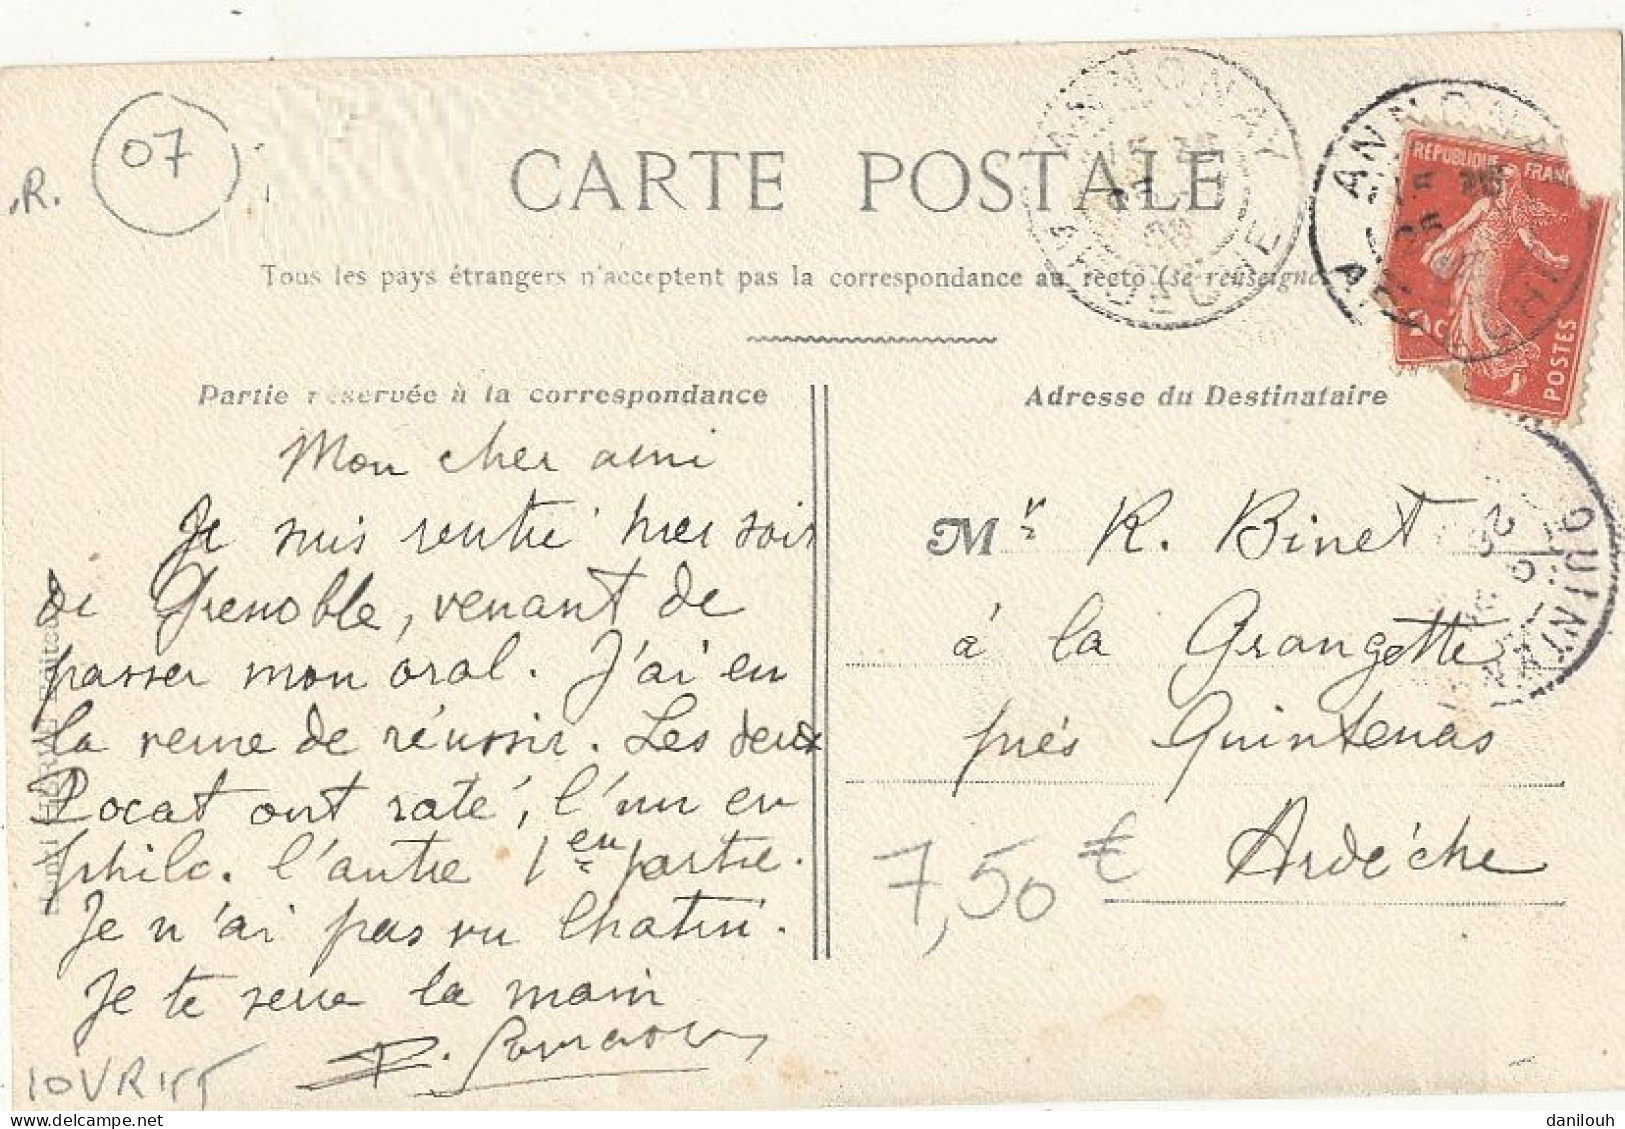 07
.R.
CARTE POSTALE
Tous les pays étrangers n'acceptent pas la correspondance au recto (se renseigne
ANNONAY
ARDECHE
ANNONAY
REPUBLIQUE FRANC
POSTES
Partie réservée à la correspondance
Mon cher ami
Je suis rentré hier soir
de Grenoble, venant de
passer mon oral. J'ai eu
la veine de réussir. Les deux
Rocat ont raté, l'un en
philo. l'autre 1ère partie.
Je n'ai pas vu Chatin.
Je te serre la main
Adresse du Destinataire
Mr R. Binet
à la Grangette
près Quintenas
Ardèche
QUINTENAS
7,50 €
danilouh